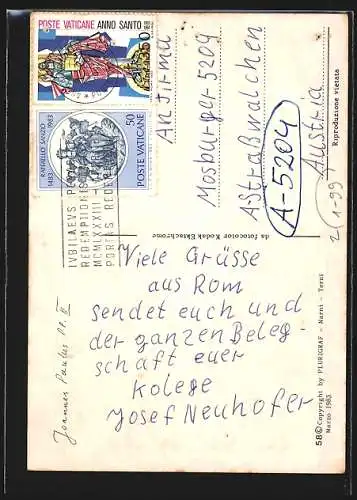 POSTE VATICANE ANNO SANTO
RAFFAELLO SANZIO
1483 1983
50
POSTE VATICANE
IVBILAEVS
REDEMPTIONIS
MCMLXXXIII
PORTAS REDE
An Firma
Mosburger-5204
AStraßwalchen
A-5204
Austria
2(1-99
Riproduzione vietata
da fotocolor Kodak Ektachrome
Viele Grüsse
aus Rom
sendet euch und
der ganzen Beleg-
schaft euer
Kolege
Josef Neuhofer
Joannes Paulus PP. II
58 © Copyright by PLURIGRAF - Narni - Terni
Marzo 1983